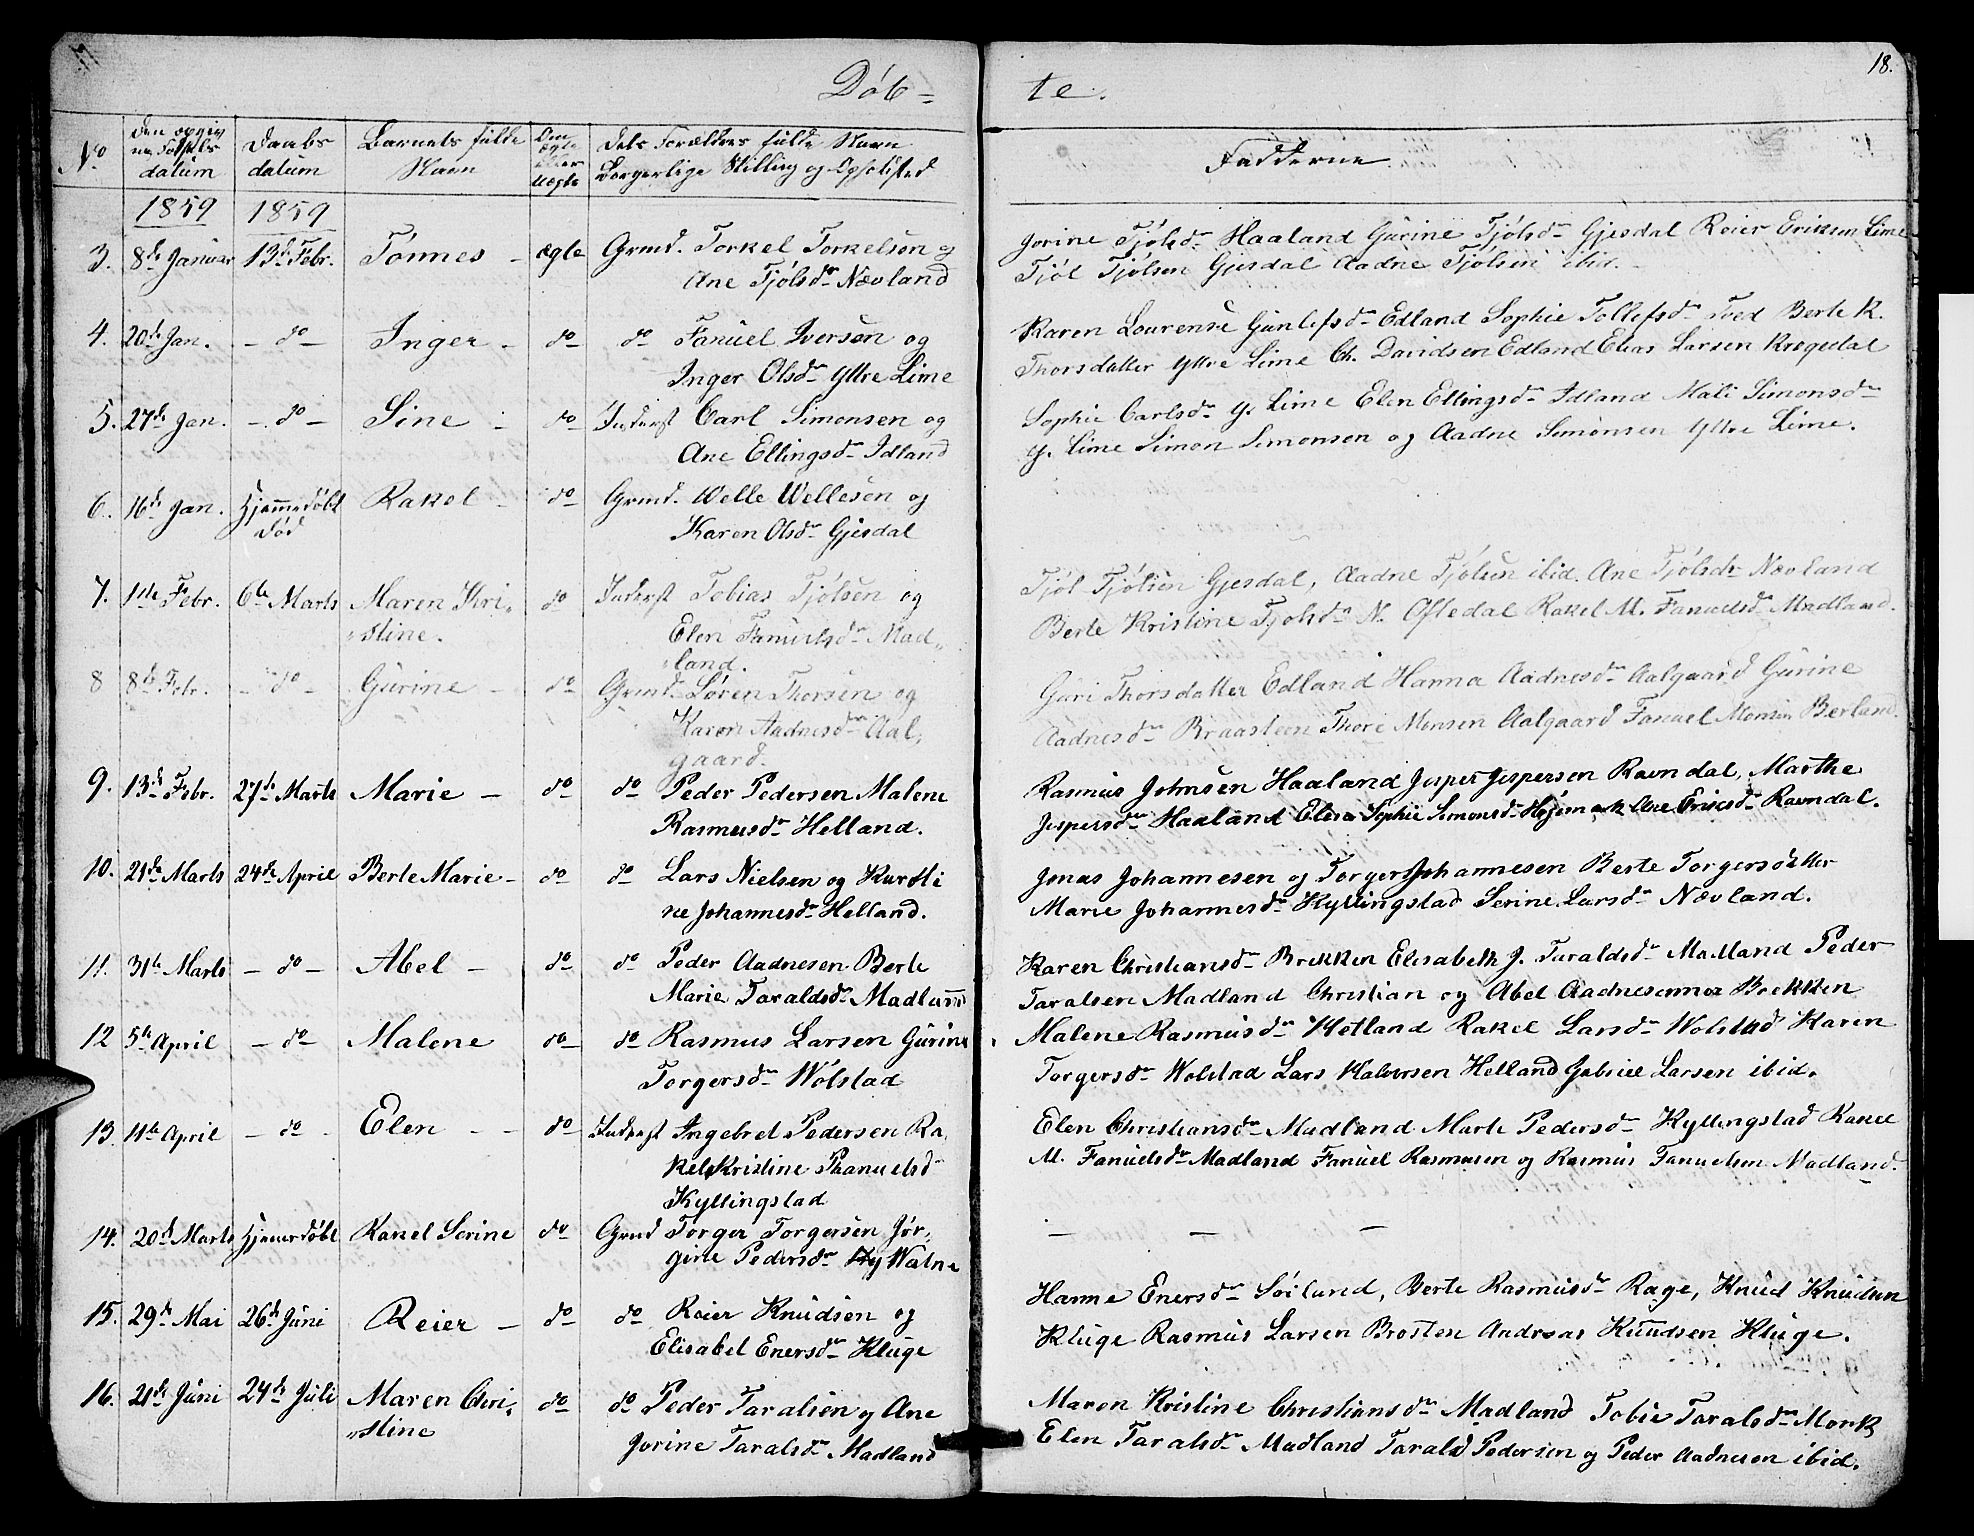 18.
Døb= te.
No den opgivne Fødsels datum Daabs datum Barnets fulde Navn Om ægte eller uægte dets Forældres fulde Navn Borgerlige Stilling og Opholdsted Fadderne
1859 1859
3. 8de Januar 13de Febr. Tønnes – ægte Grmd. Torkel Torkelsen og
Ane Tjølsdr Nævland
Jorine Tjølsdr Haaland Gurine Tjølsdr Gjesdal Reier Eriksen Lime
Tjøl Tjølsen Gjesdal Aadne Tjølsen ibid.
4. 20de Jan. – do – Inger – do do Fanuel Iversen og
Inger Olsdr Yttre Lime
Karen Lourense Gunlefsdr Edland Sophie Tollefsdr Toed Berte K.
Thorsdatter Yttre Lime Ch. Davidsen Edland Elias Larsen Krogedal
5. 27de Jan. – do – Sine – do Inderst Carl Simonsen og
Ane Ellingsdr Idland
Sophie Carlsdr y. Lime Elen Ellingsdr Idland Mali Simonsdr
y. Lime Simon Simonsen og Aadne Simonsen Yttre Lime.
6. 16de Jan. Hjemmedøbt Rakel – do Grmd. Welle Wellesen og
død Karen Olsdr Gjesdal
7. 1ste Febr. 6te Marts Maren Kri- do Inderst Tobias Tjølsen og
stine. Elen Fanuelsdr Mad-
land.
Tjøl Tjølsen Gjesdal, Aadne Tjølsen ibid. Ane Tjølsdr Nævland
Berte Kristine Tjølsdr N. Oftedal Rakel M. Fanuelsdr Madland.
8 8de Febr. – do – Gurine – do Grmd. Søren Thorsen og
Karen Aadnesdr Aal-
gaard.
Guri Thorsdatter Edland Hanna Aadnesdr Aalgaard Gurine
Aadnesdr Braasteen Thore Monsen Aalgaard Fanuel Monsen Berland.
9. 13de Febr. 27de Marts Marie – do do Peder Pedersen Malene
Rasmusdr Helland.
Rasmus Johnsen Haaland Jesper Jespersen Ravndal, Marthe
Jespersdr Haaland Elen Sophie Simonsdr Højemork Ane Ericsdr Ravndal.
10. 21de Marts 24de April Berte Marie – do do Lars Nielsen og Karsti
ne Johannesdr Helland.
Jonas Johannesen og Torger Johannesen Berte Torgersdatter
Marie Johannesdr Kyllingstad Serine Larsdr Nævland.
11. 31te Marts – do – Abel – do do Peder Aadnesen Berte
Marie Taraldsdr Madland
Karen Christiansdr Brekken Elisabeth J. Taraldsdr Madland Peder
Taralsen Madland Christian og Abel Aadnesenner Brekken
12 5te April – do – Malene do do Rasmus Larsen Gurine
Torgersdr Wølstad
Malene Rasmusdr Hetland Rakel Larsdr Wolstad Karen
Torgersdr Wolstad Lars Halvorsen Helland Gabriel Larsen ibid.
13. 11te April – do – Elen – – do Inderst Ingebret Pedersen Ra-
kel Kristine Phanuelsd
Kyllingstad
Elen Christiansdr Madland Marte Pedersdr Kyllingstad Rakel
M. Fanuelsdr Madland Fanuel Rasmusen og Rasmus Fanuelsen Madland.
14. 20de Marts Hjemmedøbt Rakel Serine do Grmd Torger Torgersen Jør-
gine Pedersdr Ky Watne
– – –
15. 29de Mai 26de Juni Reier – do do Reier Knudsen og
Elisabet Enersdr Kluge
Hanne Enersdr Søiland, Berte Rasmusdr Rage, Knud Knudsen
Kluge Rasmus Larsen Brosten Andreas Knudsen Kluge.
16. 21de Juni 24de Juli Maren Chri- do do Peder Taralsen og Ane
stine Jorine Taralsdr Madland
Maren Kristine Christiansdr Madland Tobie Taralsdr Mork
Elen Taralsdr Madland Tarald Pedersen og Peder Aadnesen ibid.